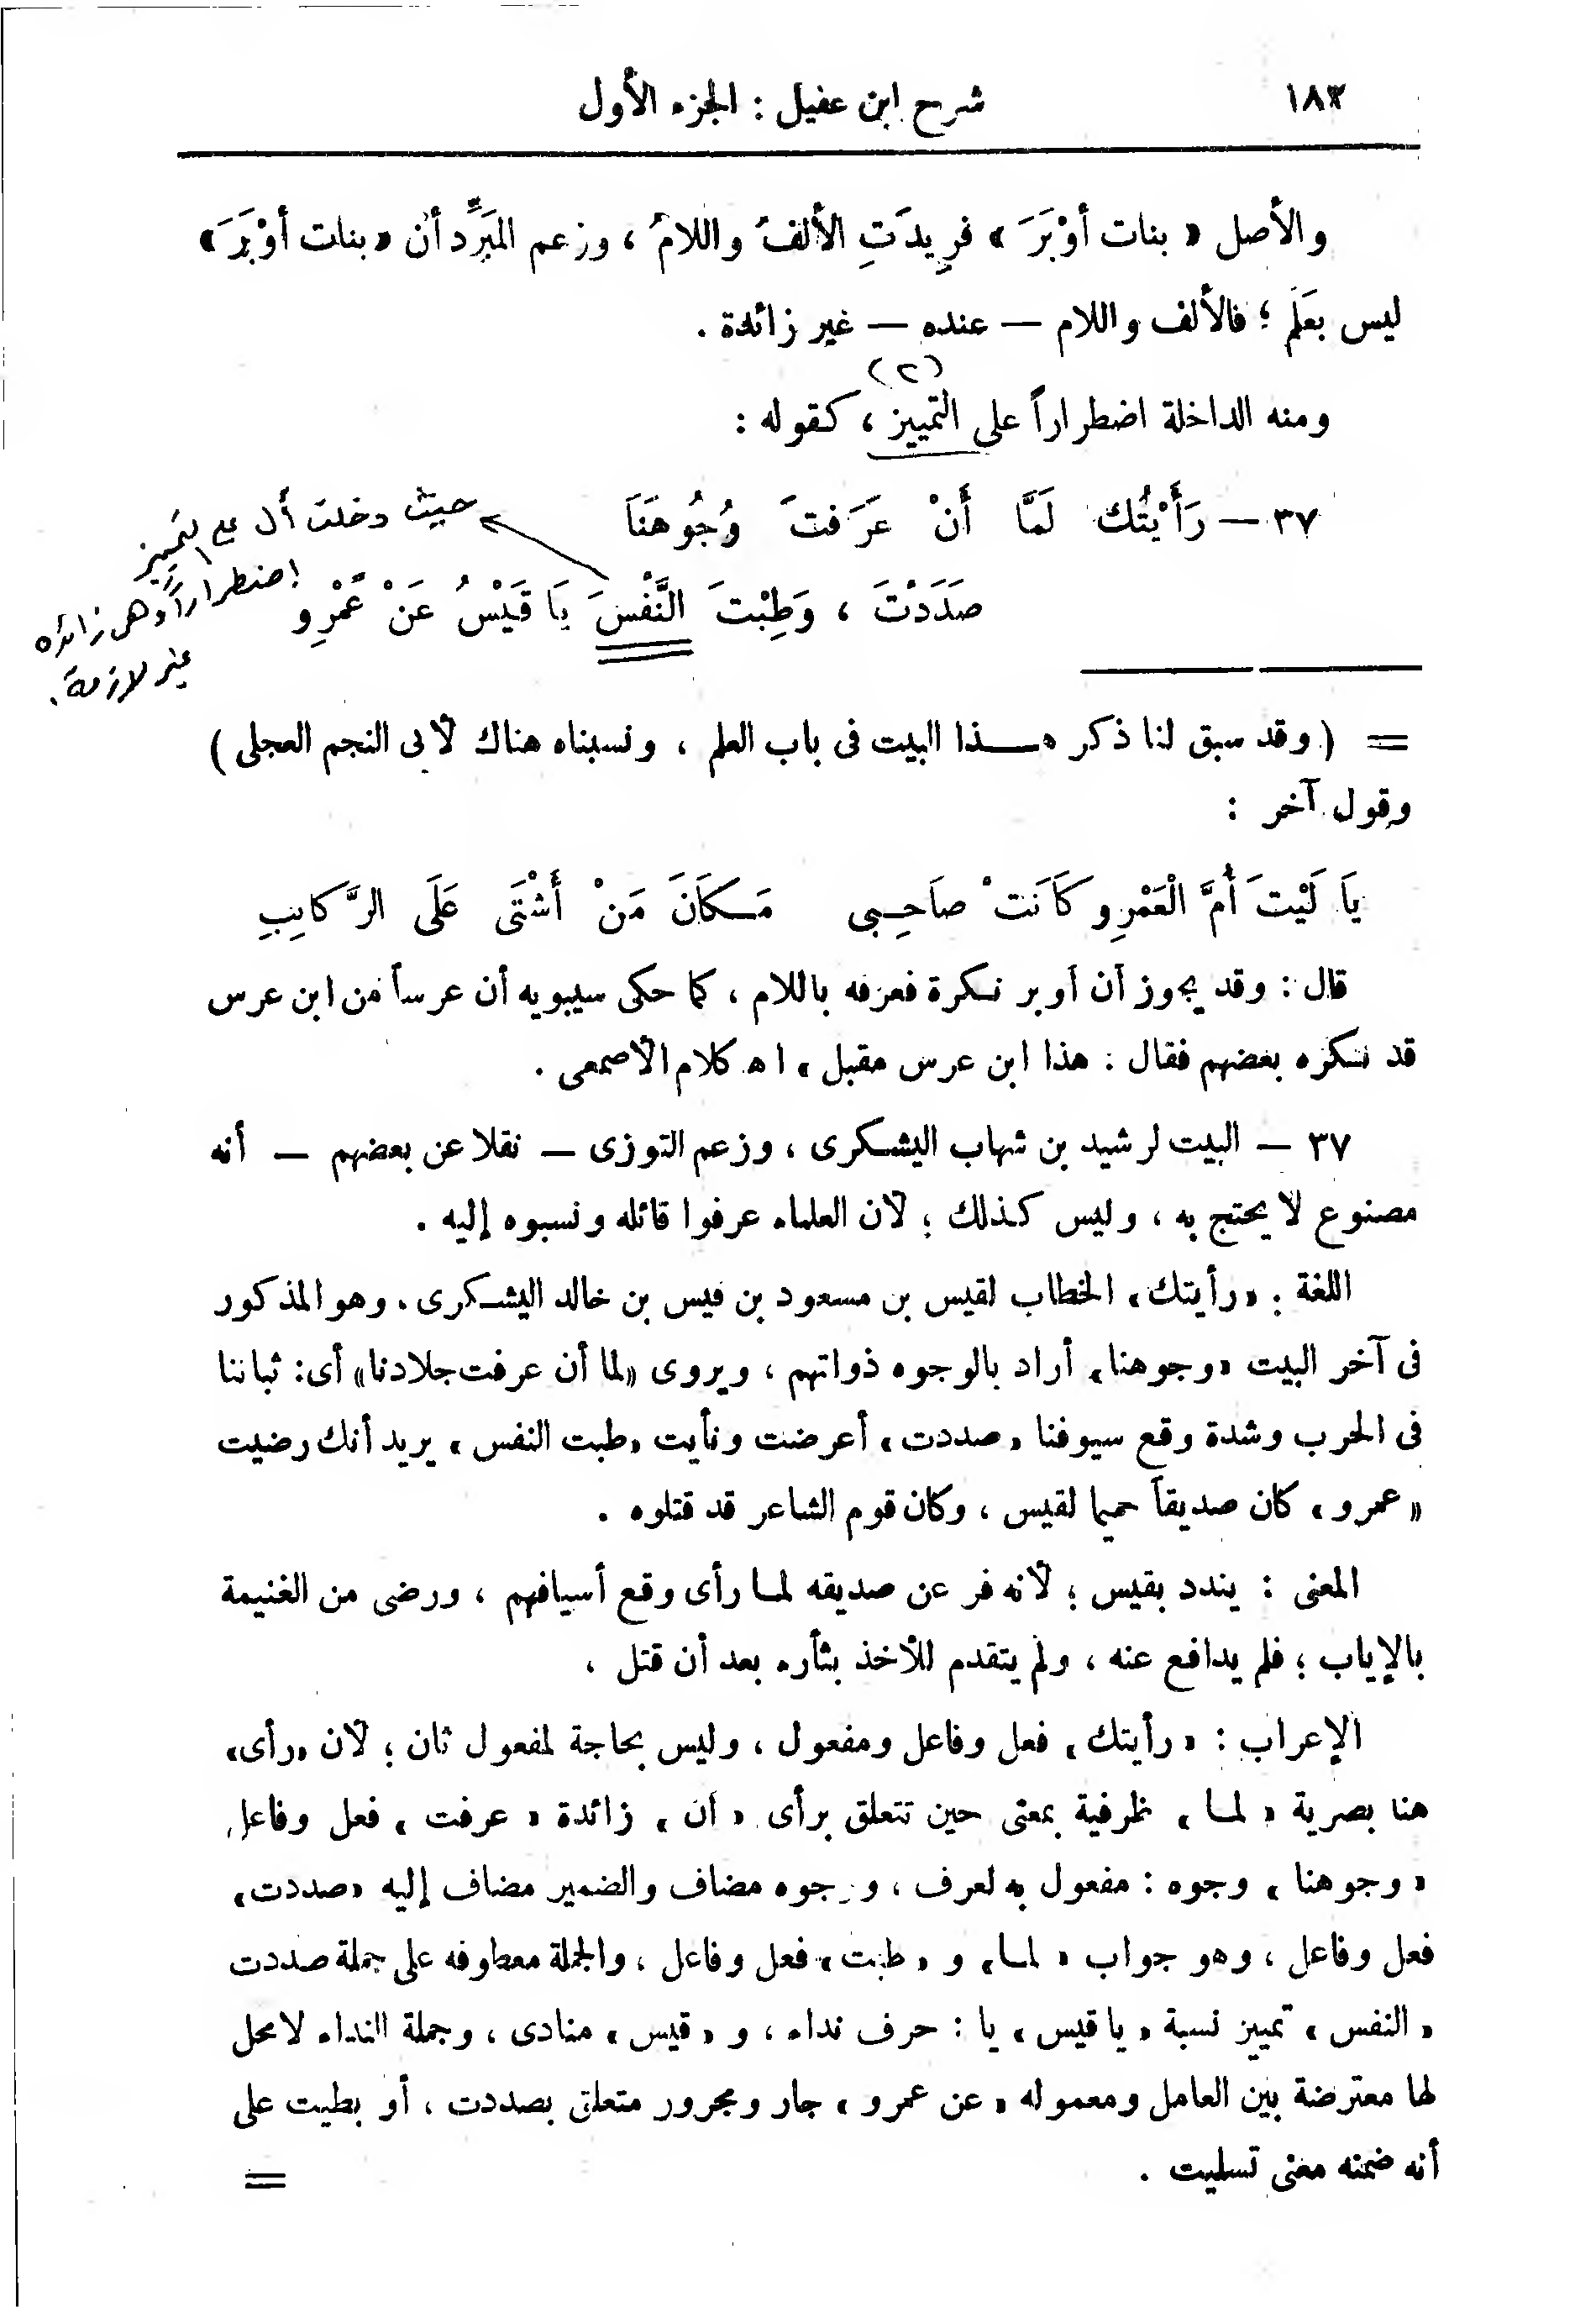 ١٨٢
شرح ابن عقيل : الجزء الأول
والأصل « بنات أوْبَرَ » فزِيدَتِ الألفُ واللامُ ، وزعم المَبرِّد أن « بنات أوْبَرَ »
ليس بعَلَمٍ ؛ فالألف واللام — عنده — غير زائدة .
(٢)
ومنه الداخلة اضطراراً على التمييز ، كقوله :
٣٧ — رَأَيْتُكَ لَمَّا أَنْ عَرَفتَ وُجُوهَنَا
صَدَدْتَ ، وَطِبْتَ النَّفْسَ يَا قَيْسُ عَنْ عَمْرِو
حيث دخلت أل على التمييز
اضطراراً وهى زائده
غير لازمة .
= ( وقد سبق لنا ذكر هــذا البيت فى باب العلم ، ونسبناه هناك لأبى النجم العجلى )
وقول آخر :
يَا لَيْتَ أُمَّ الْعَمْرِو كَانَتْ صَاحِبِى مَكَانَ مَنْ أَشْتَى عَلَى الرَّكَائِبِ
قال : وقد يجوز أن أوبر نكرة فعرفه باللام ، كما حكى سيبويه أن عرساً من ابن عرس
قد نكره بعضهم فقال : هذا ابن عرس مقبل » اهـ كلام الأصمعى .
٣٧ — البيت لرشيد بن شهاب اليشكرى ، وزعم التوزى — نقلا عن بعضهم — أنه
مصنوع لا يحتج به ، وليس كذلك ؛ لأن العلماء عرفوا قائله ونسبوه إليه .
اللغة : « رأيتك » الخطاب لقيس بن مسعود بن قيس بن خالد اليشكرى . وهو المذكور
فى آخر البيت « وجوهنا » أراد بالوجوه ذواتهم ، ويروى « لما أن عرفت جلادنا » أى : ثباتنا
فى الحرب وشدة وقع سيوفنا « صددت » أعرضت ونأيت « طبت النفس » يريد أنك رضيت
« عمرو » كان صديقاً حميما لقيس ، وكان قوم الشاعر قد قتلوه .
المعنى : يندد بقيس ؛ لأنه فر عن صديقه لمــا رأى وقع أسيافهم ، ورضى من الغنيمة
بالإياب ؛ فلم يدافع عنه ، ولم يتقدم للأخذ بثأره بعد أن قتل ،
الإعراب : « رأيتك » فعل وفاعل ومفعول ، وليس بحاجة لمفعول ثان ؛ لأن « رأى »
هنا بصرية « لمــا » ظرفية بمعنى حين تتعلق برأى « أن » زائدة « عرفت » فعل وفاعل
« وجوهنا » وجوه : مفعول به لعرف ، ووجوه مضاف والضمير مضاف إليه « صددت »
فعل وفاعل ، وهو جواب « لمــا » و « طبت » فعل وفاعل ، والجملة معطوفه على جملة صددت
« النفس » تمييز نسبة « يا قيس » يا : حرف نداء ، و « قيس » منادى ، وجملة النداء لا محل
لها معترضة بين العامل ومعموله « عن عمرو » جار ومجرور متعلق بصددت ، أو بطبت على
أنه ضمنه معنى تسليت .
=